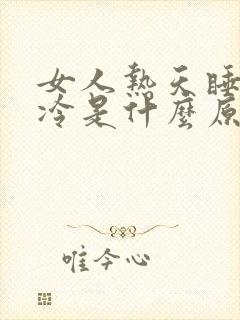 女人熱天睡
冷是什麼原
唯今心